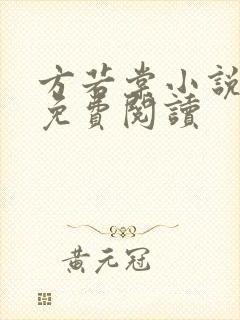 方若棠小說
免費閱讀
黃元冠